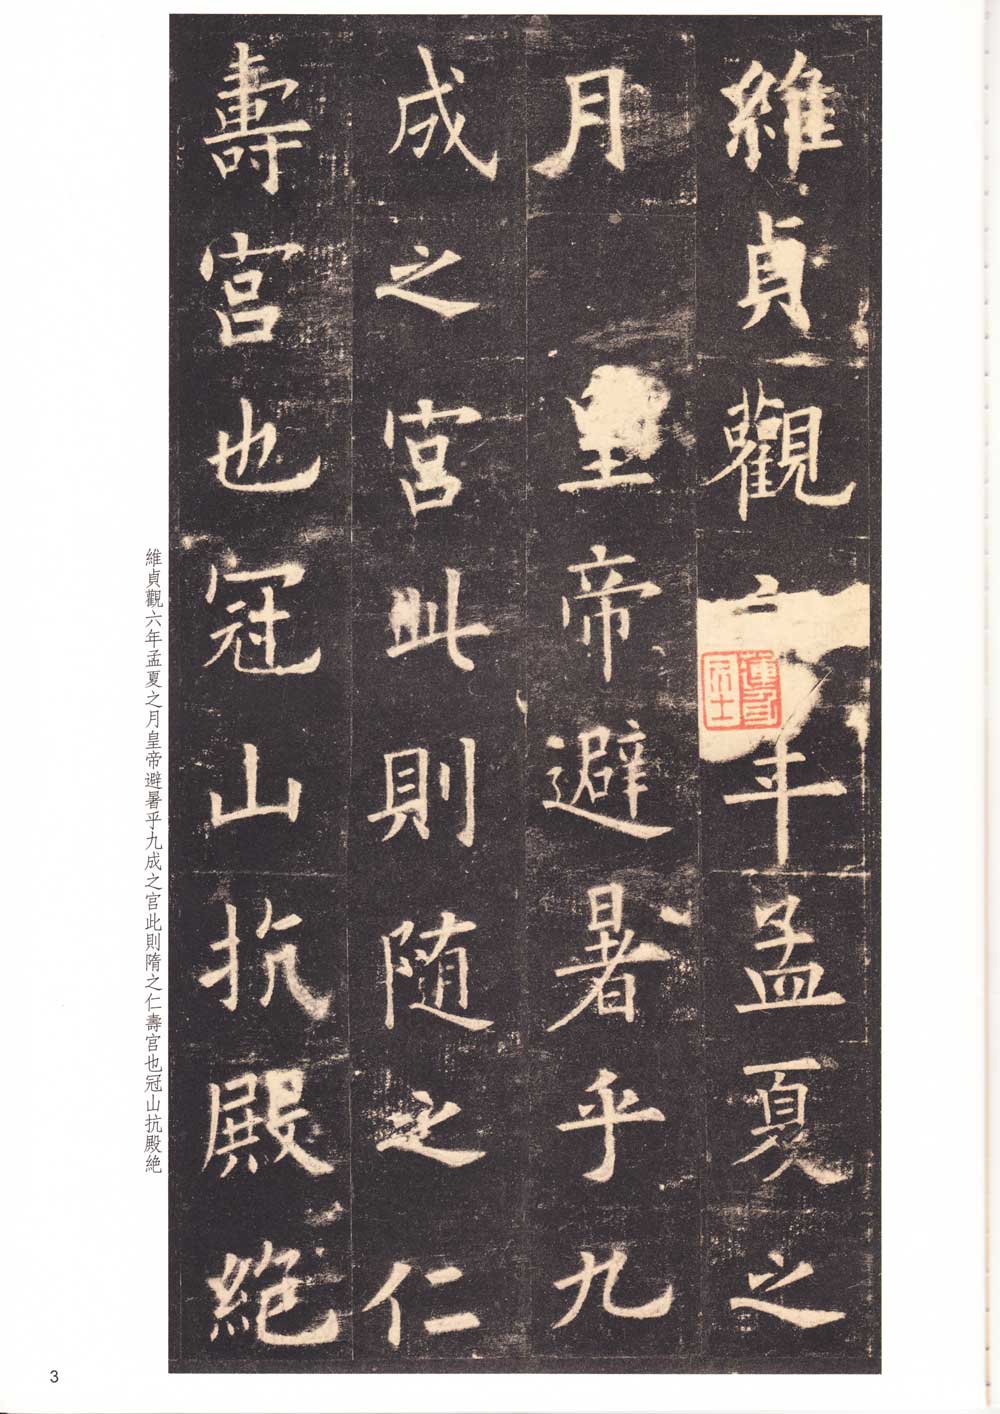 維貞觀六年孟夏之
月 皇帝避暑乎九
成之宮此則随之仁
壽宮也冠山抗殿絶
維貞觀六年孟夏之月皇帝避暑乎九成之宮此則隋之仁壽宮也冠山抗殿絶
3